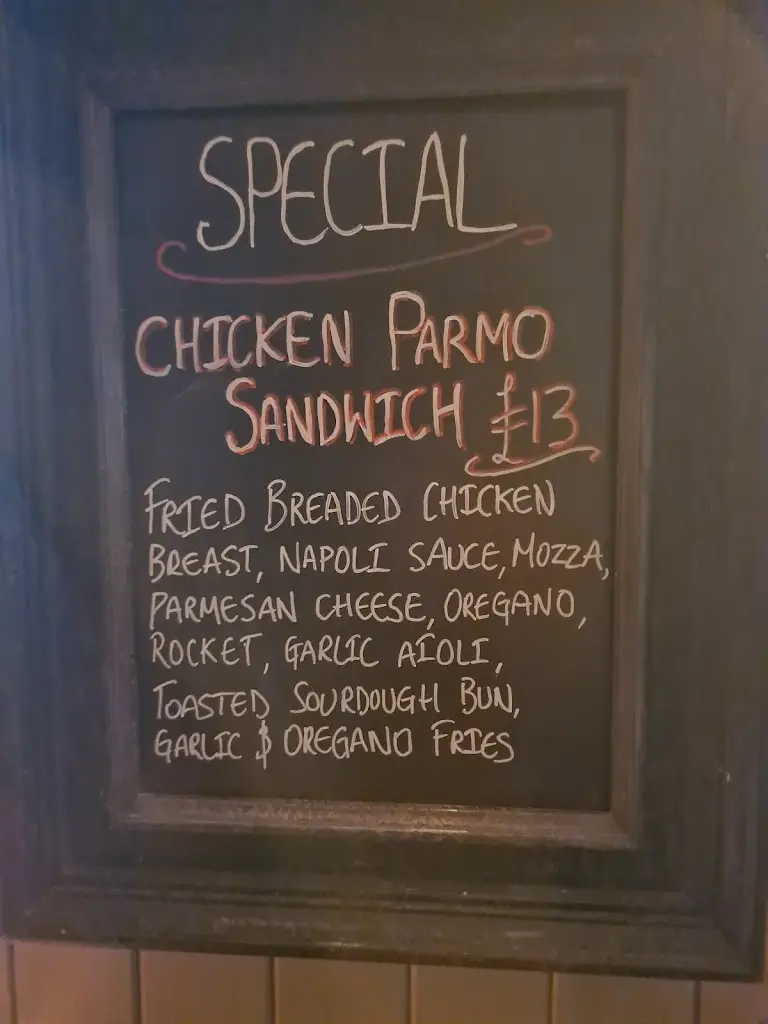 SPECIAL
CHICKEN PARMO
SANDWICH £13
FRIED BREADED CHICKEN
BREAST, NAPOLI SAUCE, MOZZA,
PARMESAN CHEESE, OREGANO,
ROCKET, GARLIC AÏOLI,
TOASTED SOURDOUGH BUN,
GARLIC $ OREGANO FRIES